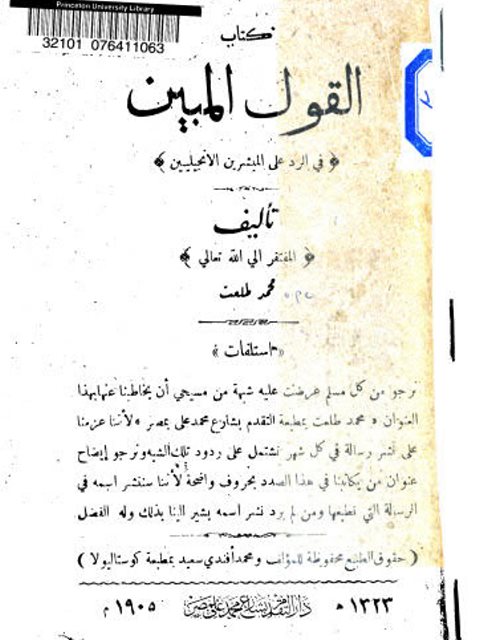 Princeton University Library
32101 076411063
كتاب
القول المبين
﴿ في الرد على المبشرين الانجيليين ﴾
تأليف
﴿ المفتقر الي الله تعالي ﴾
محمد طلعت
« استلفات »
نرجو من كل مسلم عرضت عليه شبهة من مسيحي أن يخاطبنا عنها بهذا
العنوان « محمد طلعت بمطبعة التقدم بشارع محمد على بمصر » لأننا عزمنا
على نشر رسالة في كل شهر تشتمل على ردود تلك الشبه ونرجو إيضاح
عنوان من يكاتبنا في هذا الصدد بحروف واضحة لأننا سننشر اسمه في
الرسالة التي نطبعها ومن لم يرد نشر اسمه يشير الينا بذلك وله الفضل
( حقوق الطبع محفوظة للمؤلف ومحمد أفندي سعيد بمطبعة كوستاليولا )
١٣٢٣ ه دار التقدم بشارع محمد علي بمصر ١٩٠٥ م